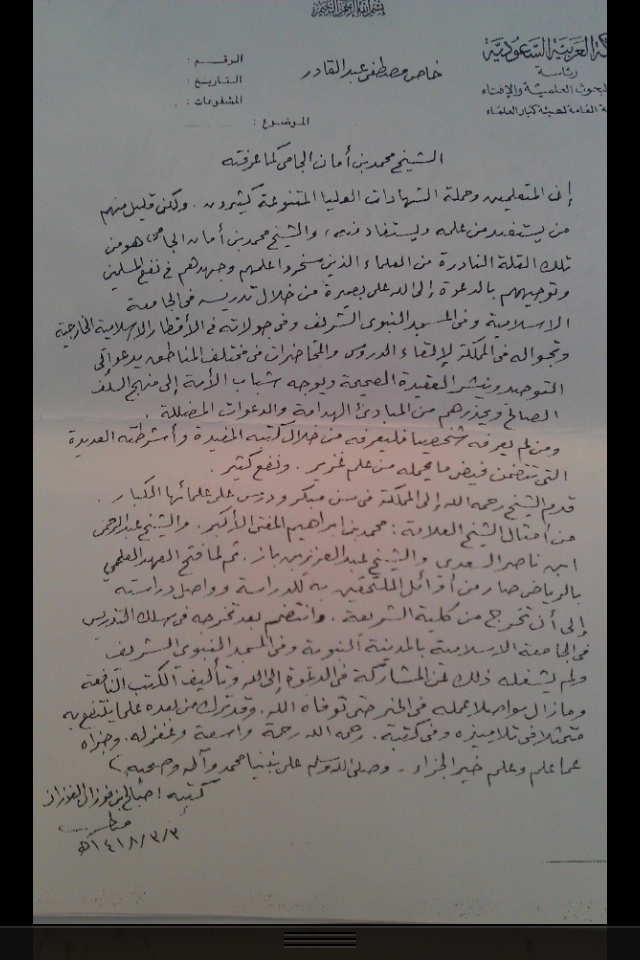 بسم الله الرحمن الرحيم
المملكة العربية السعودية
رئاسة
البحوث العلمية والإفتاء
الأمانة العامة لهيئة كبار العلماء
الرقم :
التاريخ :
المشفوعات :
الموضوع :
خاص مصطفى عبد القادر
الشيخ محمد بن أمان الجامي كما عرفته
إن المتعلمين وحملة الشهادات العليا المتنوعة كثيرون . ولكن قليل منهم
من يستفيد من علمه ويستفاد منه ، والشيخ محمد بن أمان الجامي هو من
تلك القلة النادرة من العلماء الذين سخروا علمهم وجهدهم في نفع المسلمين
وتوجيههم بالدعوة إلى الله على بصيرة من خلال تدريسه في الجامعة
الاسلامية وفي المسجد النبوي الشريف وفي جولاته في الأقطار الاسلامية الخارجية
وتجواله في المملكة لإلقاء الدروس والمحاضرات في مختلف المناطق يدعو إلى
التوحيد وينشر العقيدة الصحيحة ويوجه شباب الأمة إلى منهج السلف
الصالح ويحذرهم من المبادئ الهدامة والدعوات المضللة .
ومن لم يعرفه شخصيا فليعرفه من خلال كتبه المفيدة وأشرطته العديدة
التي تتضمن فيض ما يحمله من علم غزير . ونفع كثير .
قدم الشيخ رحمه الله إلى المملكة في سن مبكر ودرس على علمائها الكبار .
من أمثال الشيخ العلامة : محمد بن ابراهيم المفتي الأكبر . والشيخ عبد الرحمن
ابن ناصر السعدي والشيخ عبد العزيز بن باز . ثم لما فتح المعهد العلمي
بالرياض صار من أوائل الملتحقين به للدراسة وواصل دراسته
إلى أن تخرج من كلية الشريعة . وانتضم بعد تخرجه في سلك التدريس
في الجامعة الاسلامية بالمدينة النبوية وفي المسجد النبوي الشريف
ولم يشغله ذلك عن المشاركة في الدعوة إلى الله وتأليف الكتب النافعة
وما زال مواصلا عمله في الخير حتى توفاه الله . وقد ترك من بعده علما ينتفع به
متمثلا في تلاميذه وفي كتبه . رحمه الله رحمة واسعة وغفر له . وجزاه
عما علم وعلم خير الجزاء . وصلى الله وسلم على نبينا محمد وآله وصحبه
كتبه : صالح بن فوزان الفوزان
١٤١٨/٣/٣هـ